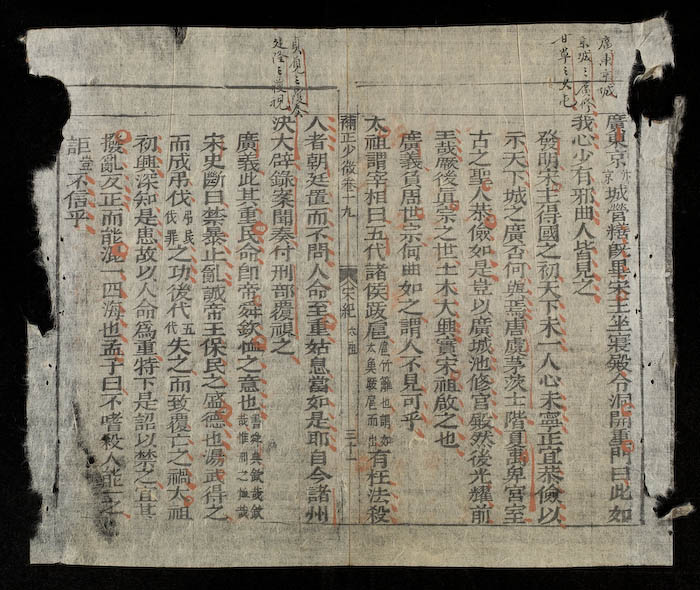 廣東京城
京城之廣修
貞觀之覆奏
建隆之覆視
廣東京外京城營繕旣畢宋主坐寢殿令洞開重門曰此如
我心少有邪曲人皆見之
發明宋主得國之初天下未一人心未寧正宜恭儉以
示天下城之廣否何與焉唐虞茅茨土階夏禹卑宮室
古之聖人恭儉如是豈以廣城池修宮殿然後光耀前
王哉厥後眞宗之世土木大興實宋祖啟之也
廣義負周世宗何曲如之謂人不見可乎
太祖謂宰相曰五代諸侯跋扈扈竹籬也謂如大魚跋扈而出有枉法殺
補正少微卷十九 宋紀 太祖 三十一
人者朝廷置而不問人命至重姑息當如是耶自今諸州
決大辟錄案聞奏付刑部覆視之
廣義此其重民命卽帝舜欽恤之意也書舜典欽哉欽哉惟刑之恤哉
宋史斷曰禁暴止亂誠帝王保民之盛德也湯武得之
而成弔伐弔民伐罪之功後代五代失之而致覆亡之禍太祖
初興深知是患故以人命爲重特下是詔以禁之宜其
撥亂反正而能混一四海也孟子曰不嗜殺人能一之
詎豈不信乎